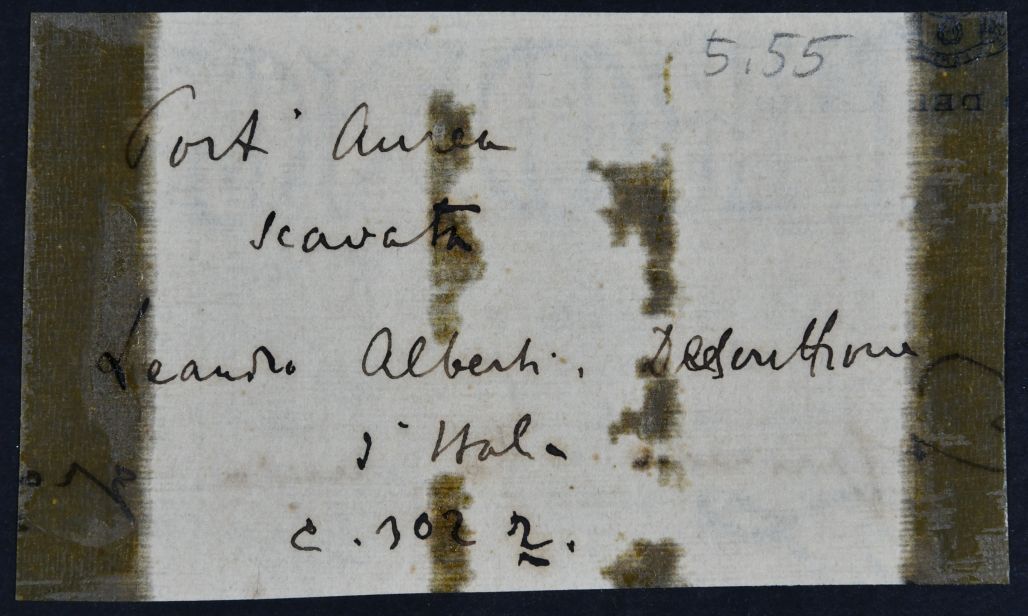 5.55
Port' Aurea
scavata
Leandro Alberti. Descrittione
d'Italia
c. 302 r.